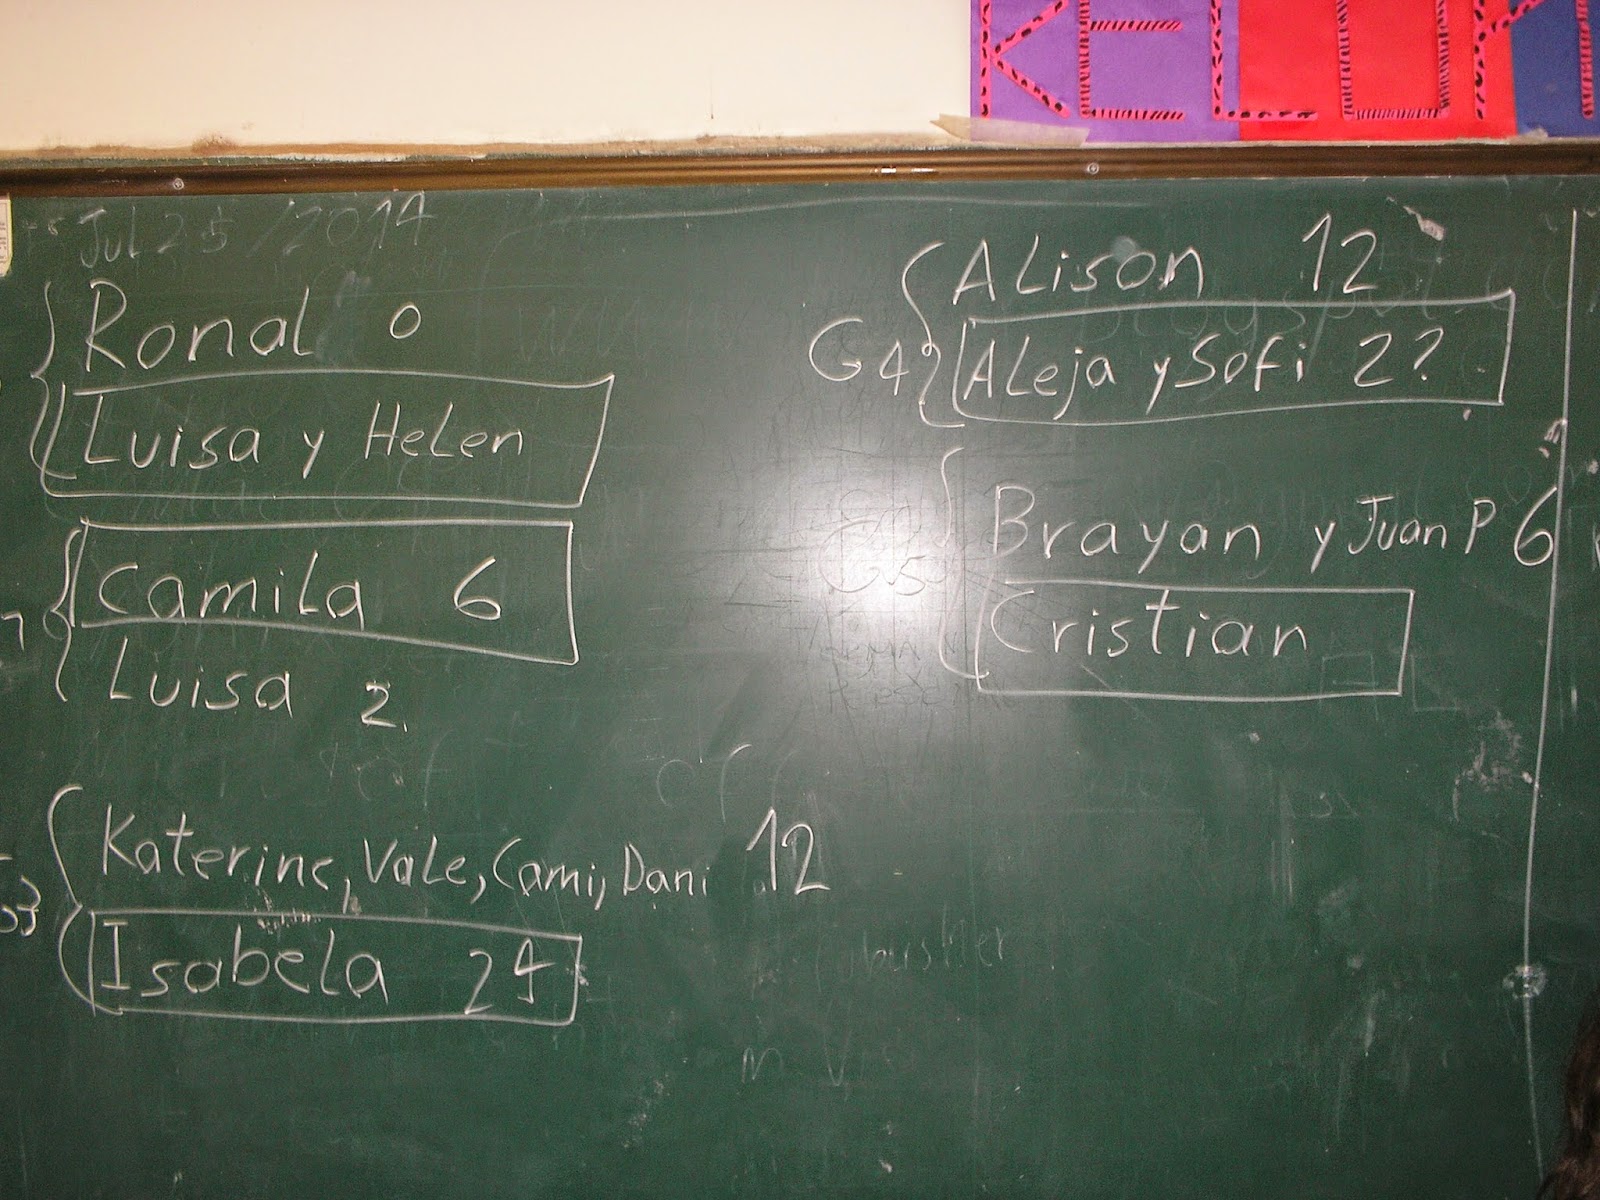 Jul 25/2014
Ronal 0
Luisa y Helen
Camila 6
Luisa 2.
Katerine, Vale, Cami, Dani 12
Isabela 24
G4
Alison 12
Aleja y Sofi 2?
G5
Brayan y Juan P 6
Cristian